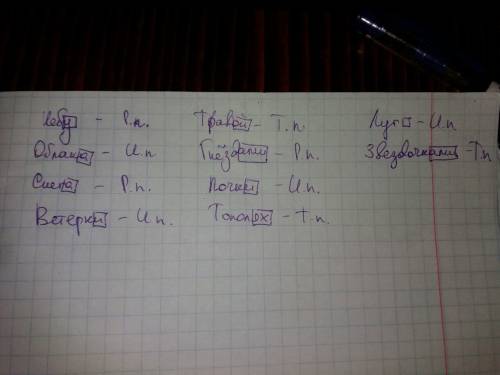 Небу - Р.п. Травой - Т.п. Луг - И.п.
Облака - И.п. Гнёздами - Р.п. Звездочками - Т.п.
Снега - Р.п. Почки - И.п.
Ветерки - И.п. Тополях - Т.п.